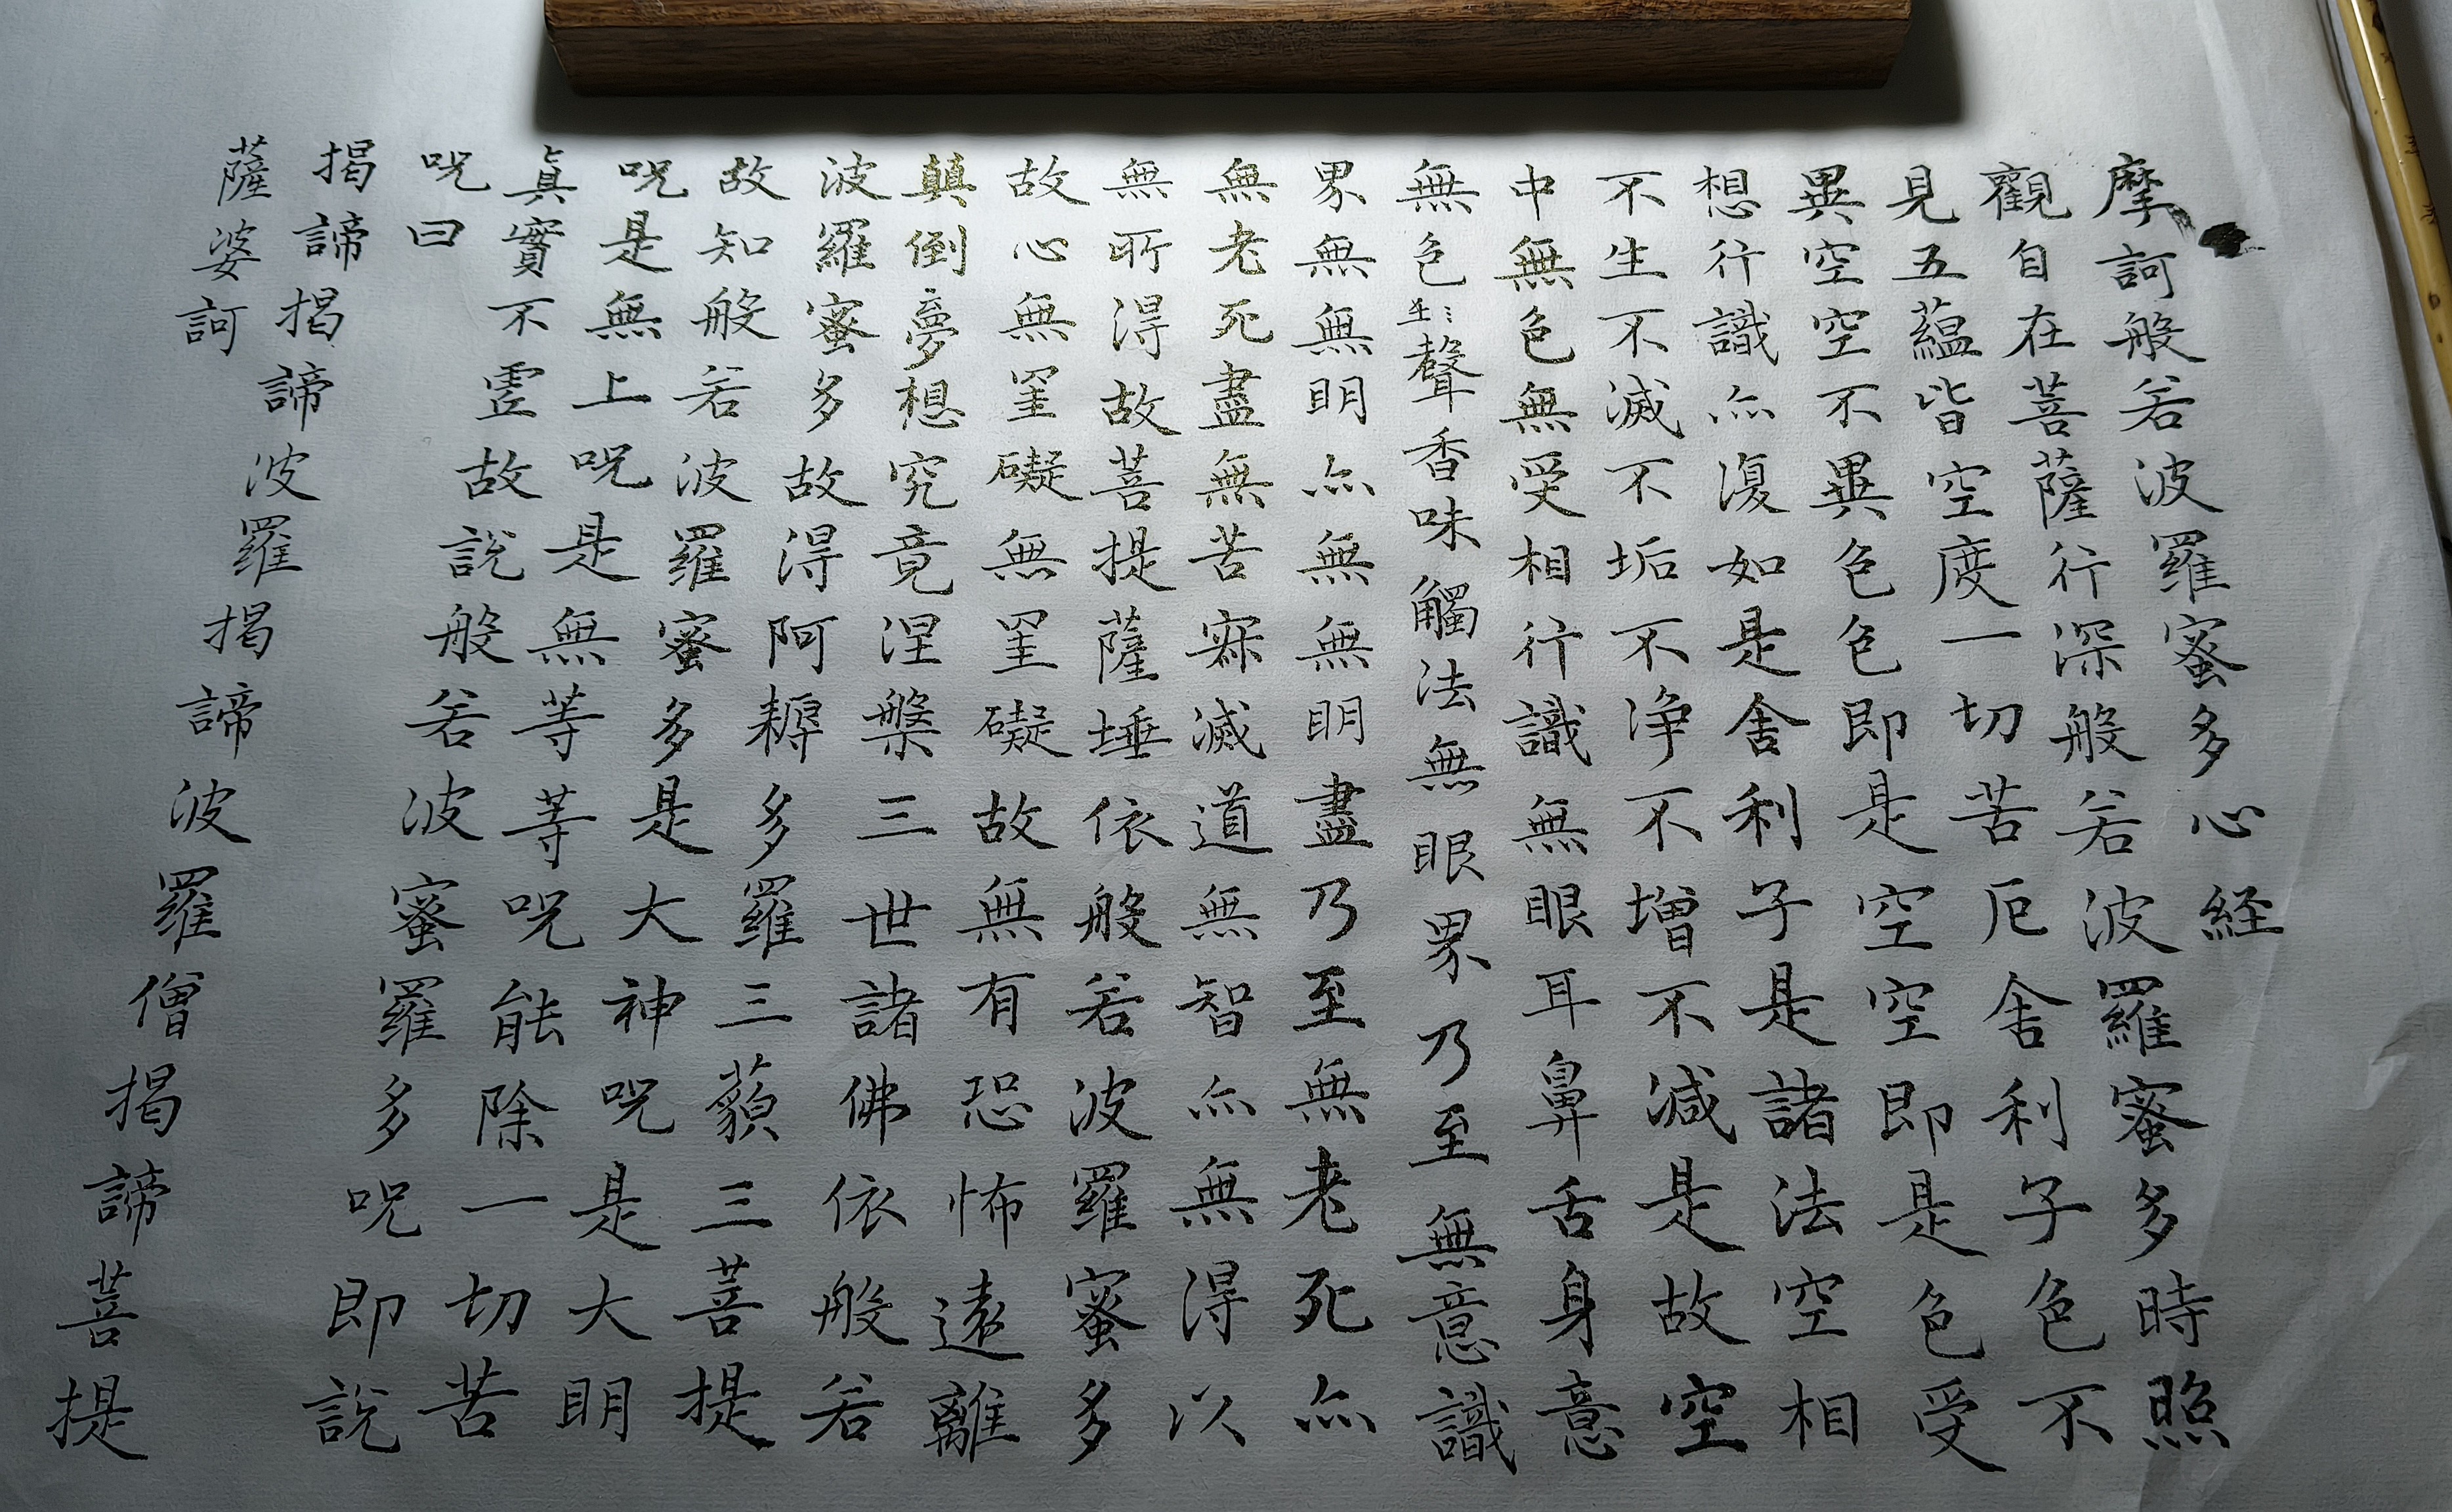 摩訶般若波羅蜜多心経
觀自在菩薩行深般若波羅蜜多時照
見五蘊皆空度一切苦厄舍利子色不
異空空不異色色即是空空即是色受
想行識亦復如是舍利子是諸法空相
不生不滅不垢不淨不增不減是故空
中無色無受相行識無眼耳鼻舌身意
無色聲香味觸法無眼界乃至無意識
界無無明亦無無明盡乃至無老死亦
無老死盡無苦寂滅道無智亦無得以
無所得故菩提薩埵依般若波羅蜜多
故心無罣礙無罣礙故無有恐怖遠離
顛倒夢想究竟涅槃三世諸佛依般若
波羅蜜多故得阿耨多羅三藐三菩提
故知般若波羅蜜多是大神呪是大明
呪是無上呪是無等等呪能除一切苦
真實不虛故說般若波蜜羅多呪即說
呪曰
揭諦揭諦波羅揭諦波羅僧揭諦菩提
薩婆訶